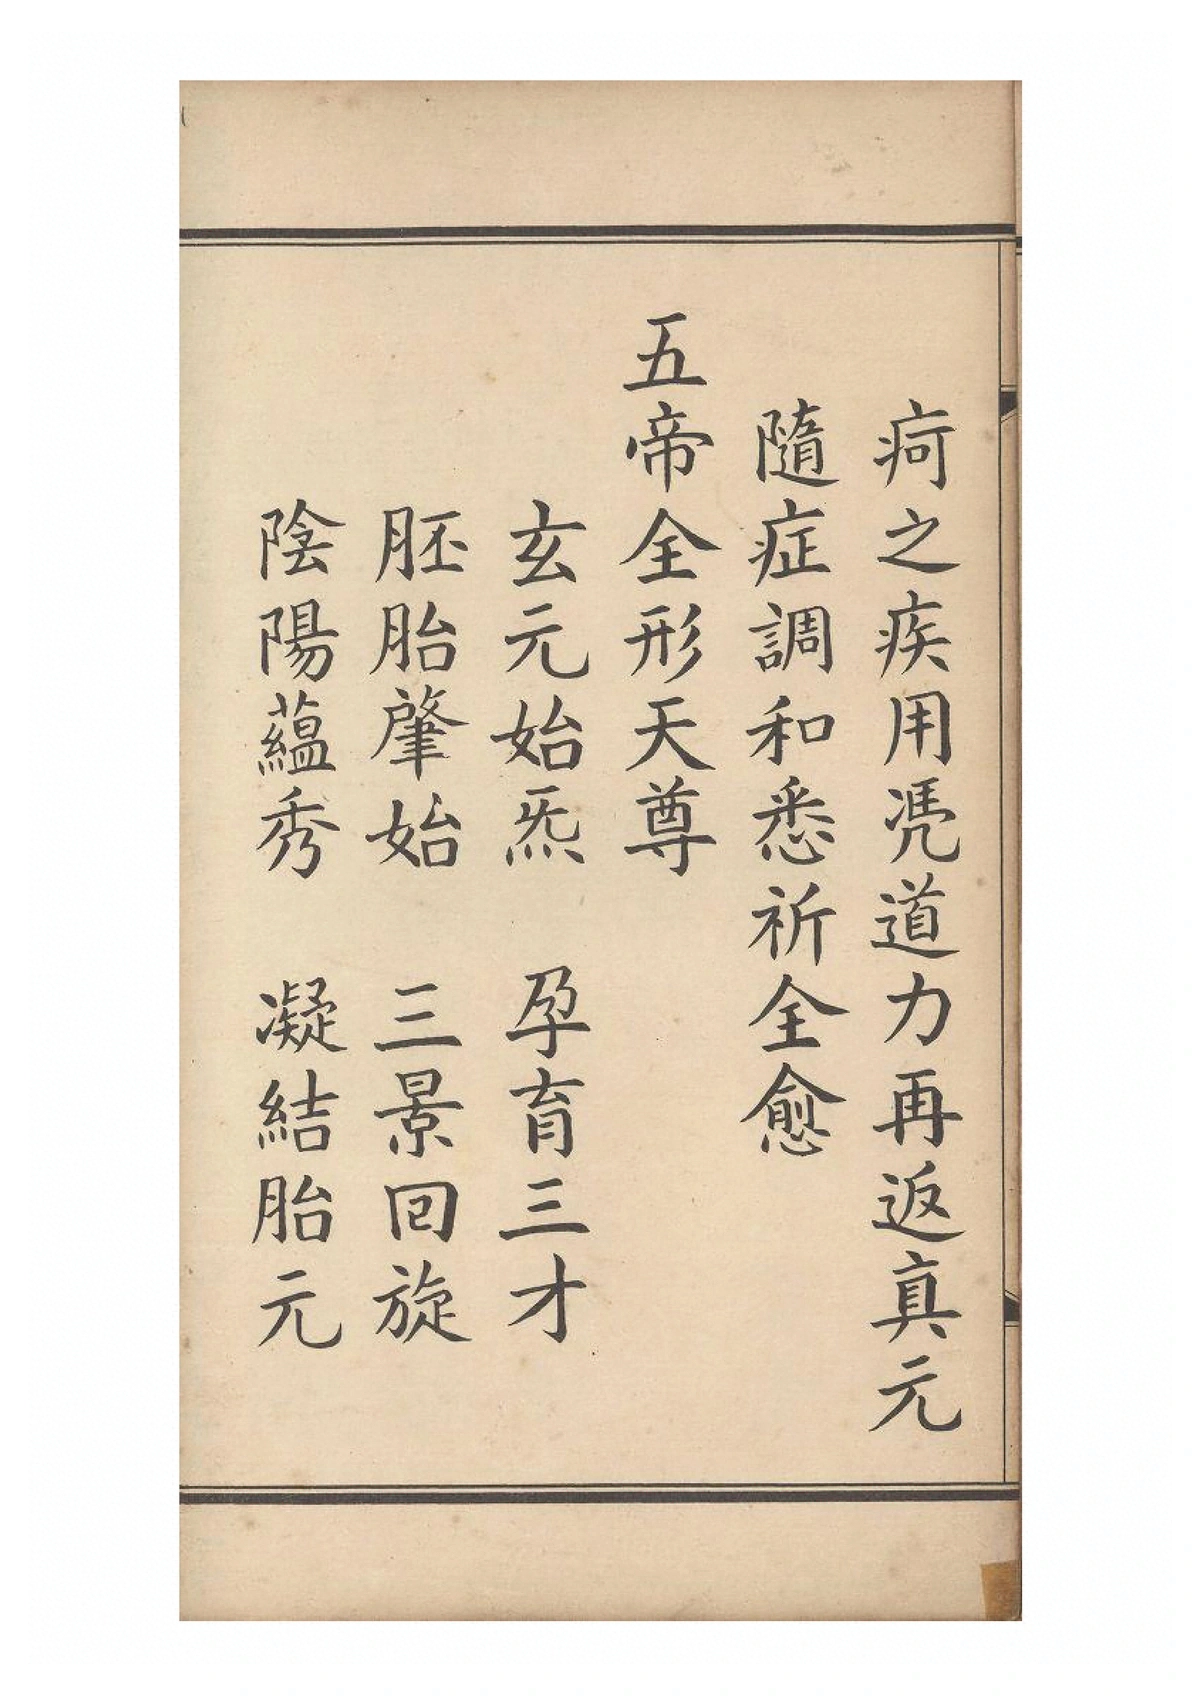 疴之疾用凴道力再返真元
隨症調和悉祈全愈
五帝全形天尊
玄元始炁　孕育三才
胚胎肇始　三景回旋
陰陽蘊秀　凝結胎元